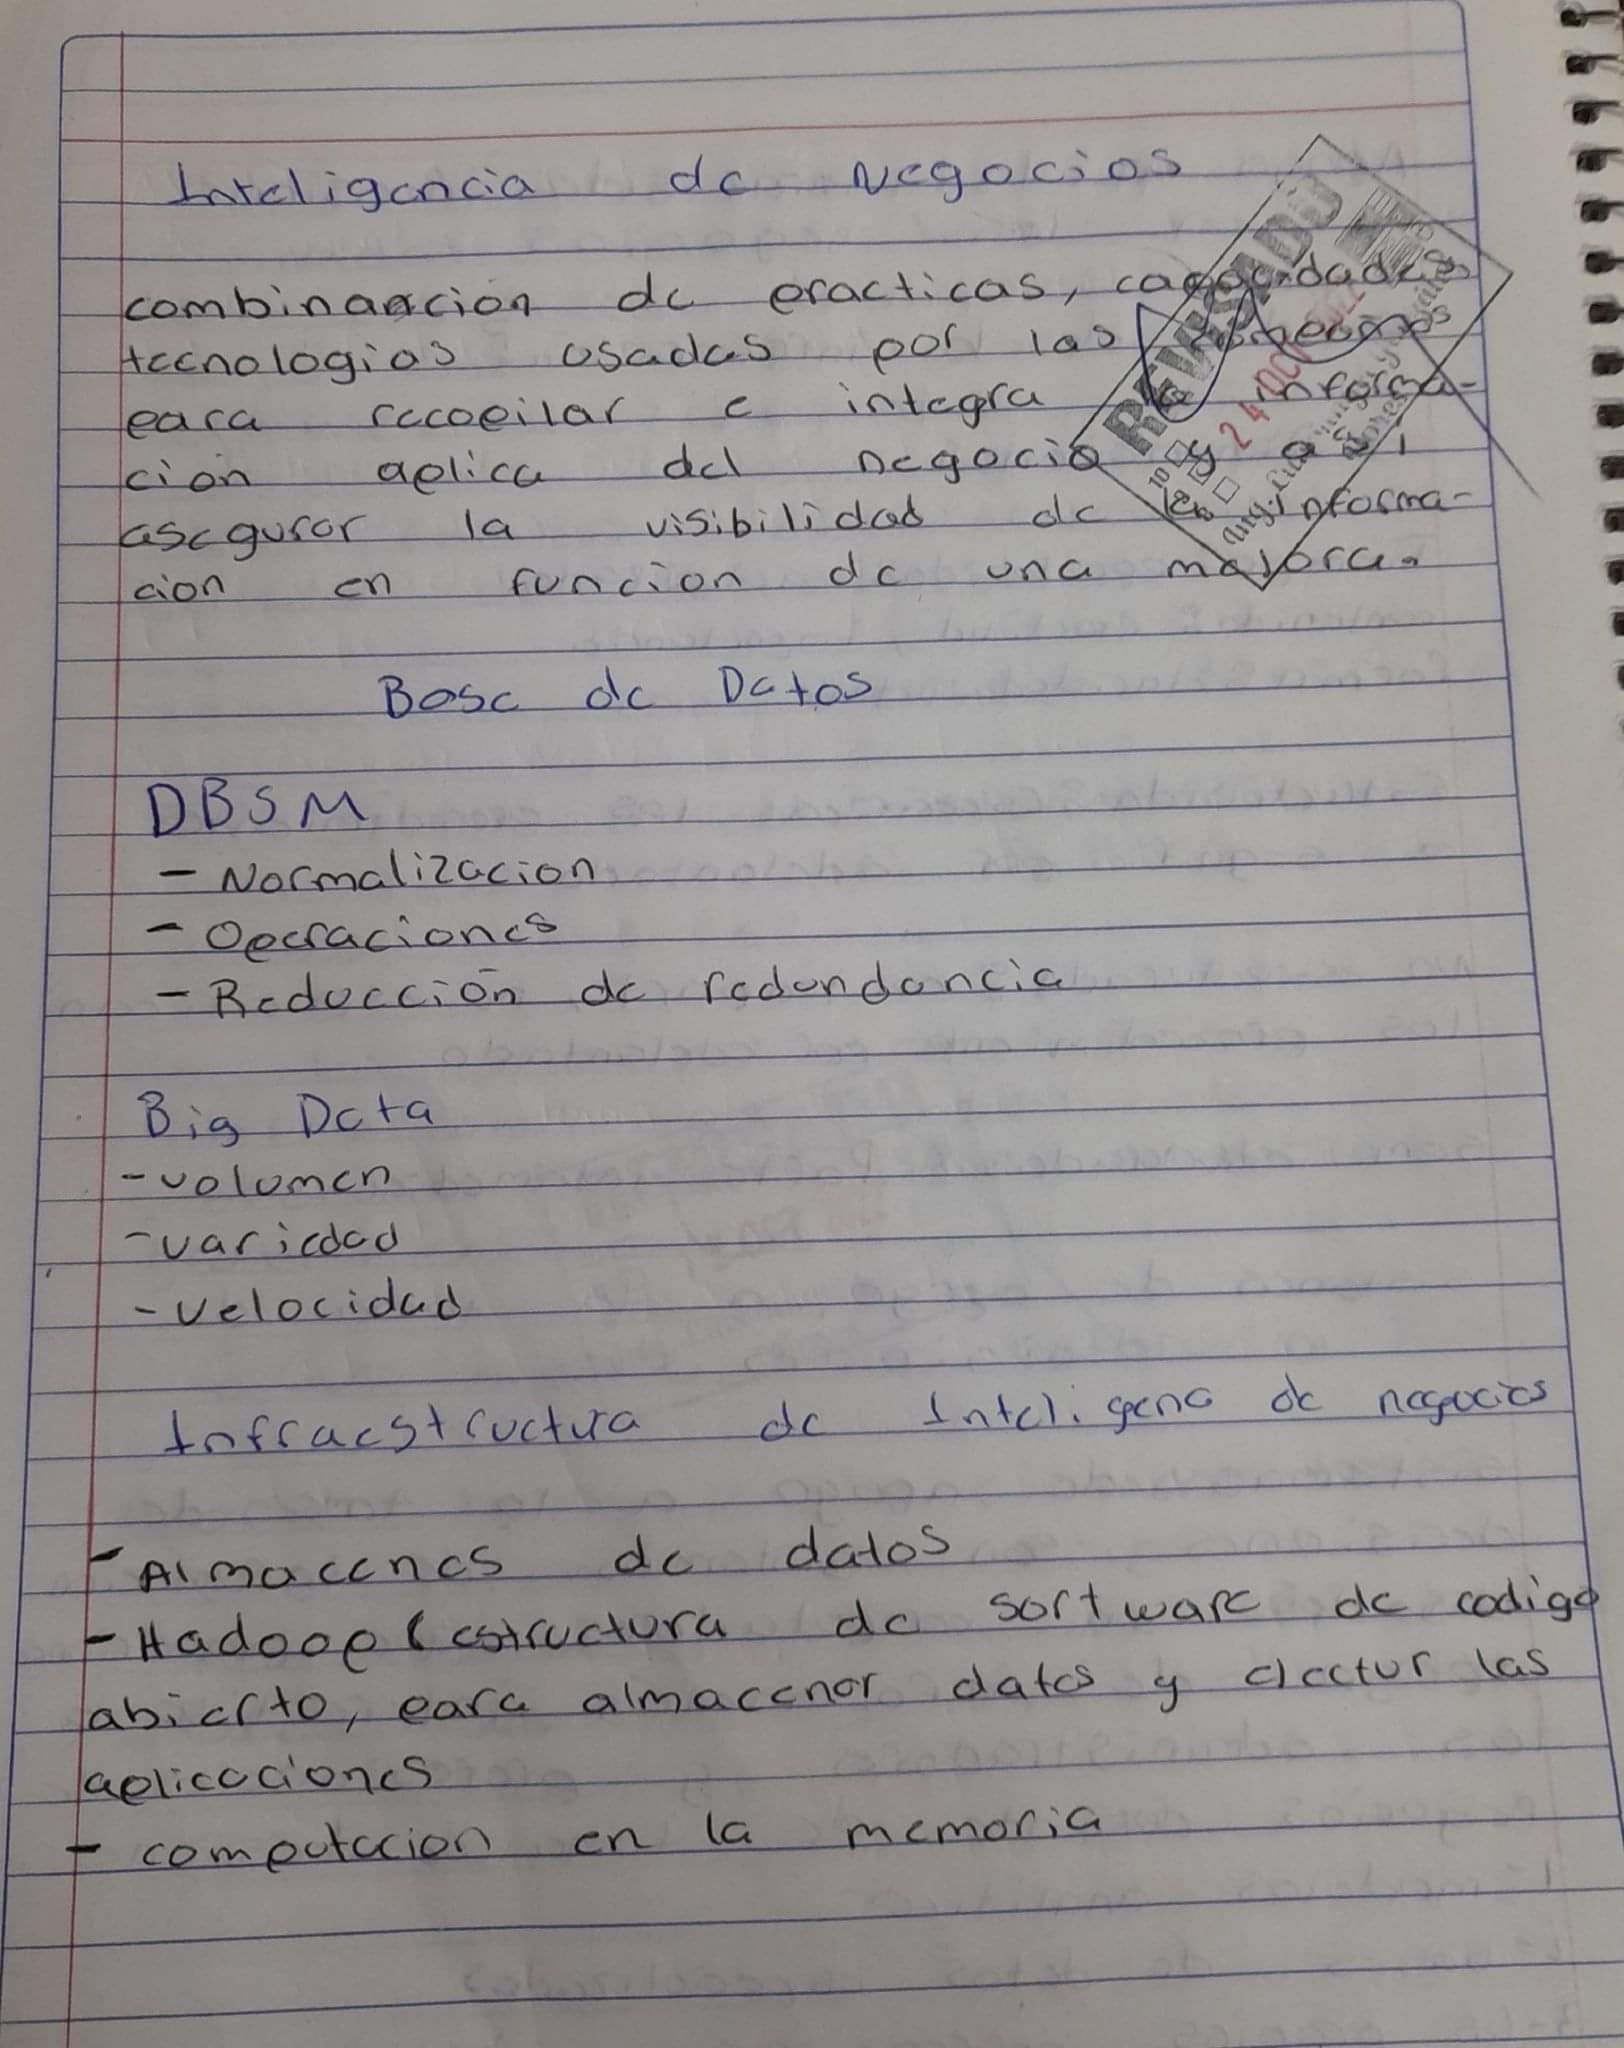 Inteligencia de Negocios
combinancion de practicas, capacidades
tecnologias usadas por las
para recopilar e integra la informa-
cion aplica del negocio y asi
asegurar la visibilidad de la informa-
cion en funcion de una majora.
REVISADO
24 OCT
10
Base de Datos
DBSM
- Normalizacion
- Operaciones
- Reducción de redundancia
Big Data
- volumen
- variedad
- velocidad
Infraestructura de Inteligenc de negocios
- Almacenes de datos
- Hadoop ( estructura de software de codigo
abierto, para almacenar datos y electur las
aplicaciones
- computacion en la memoria